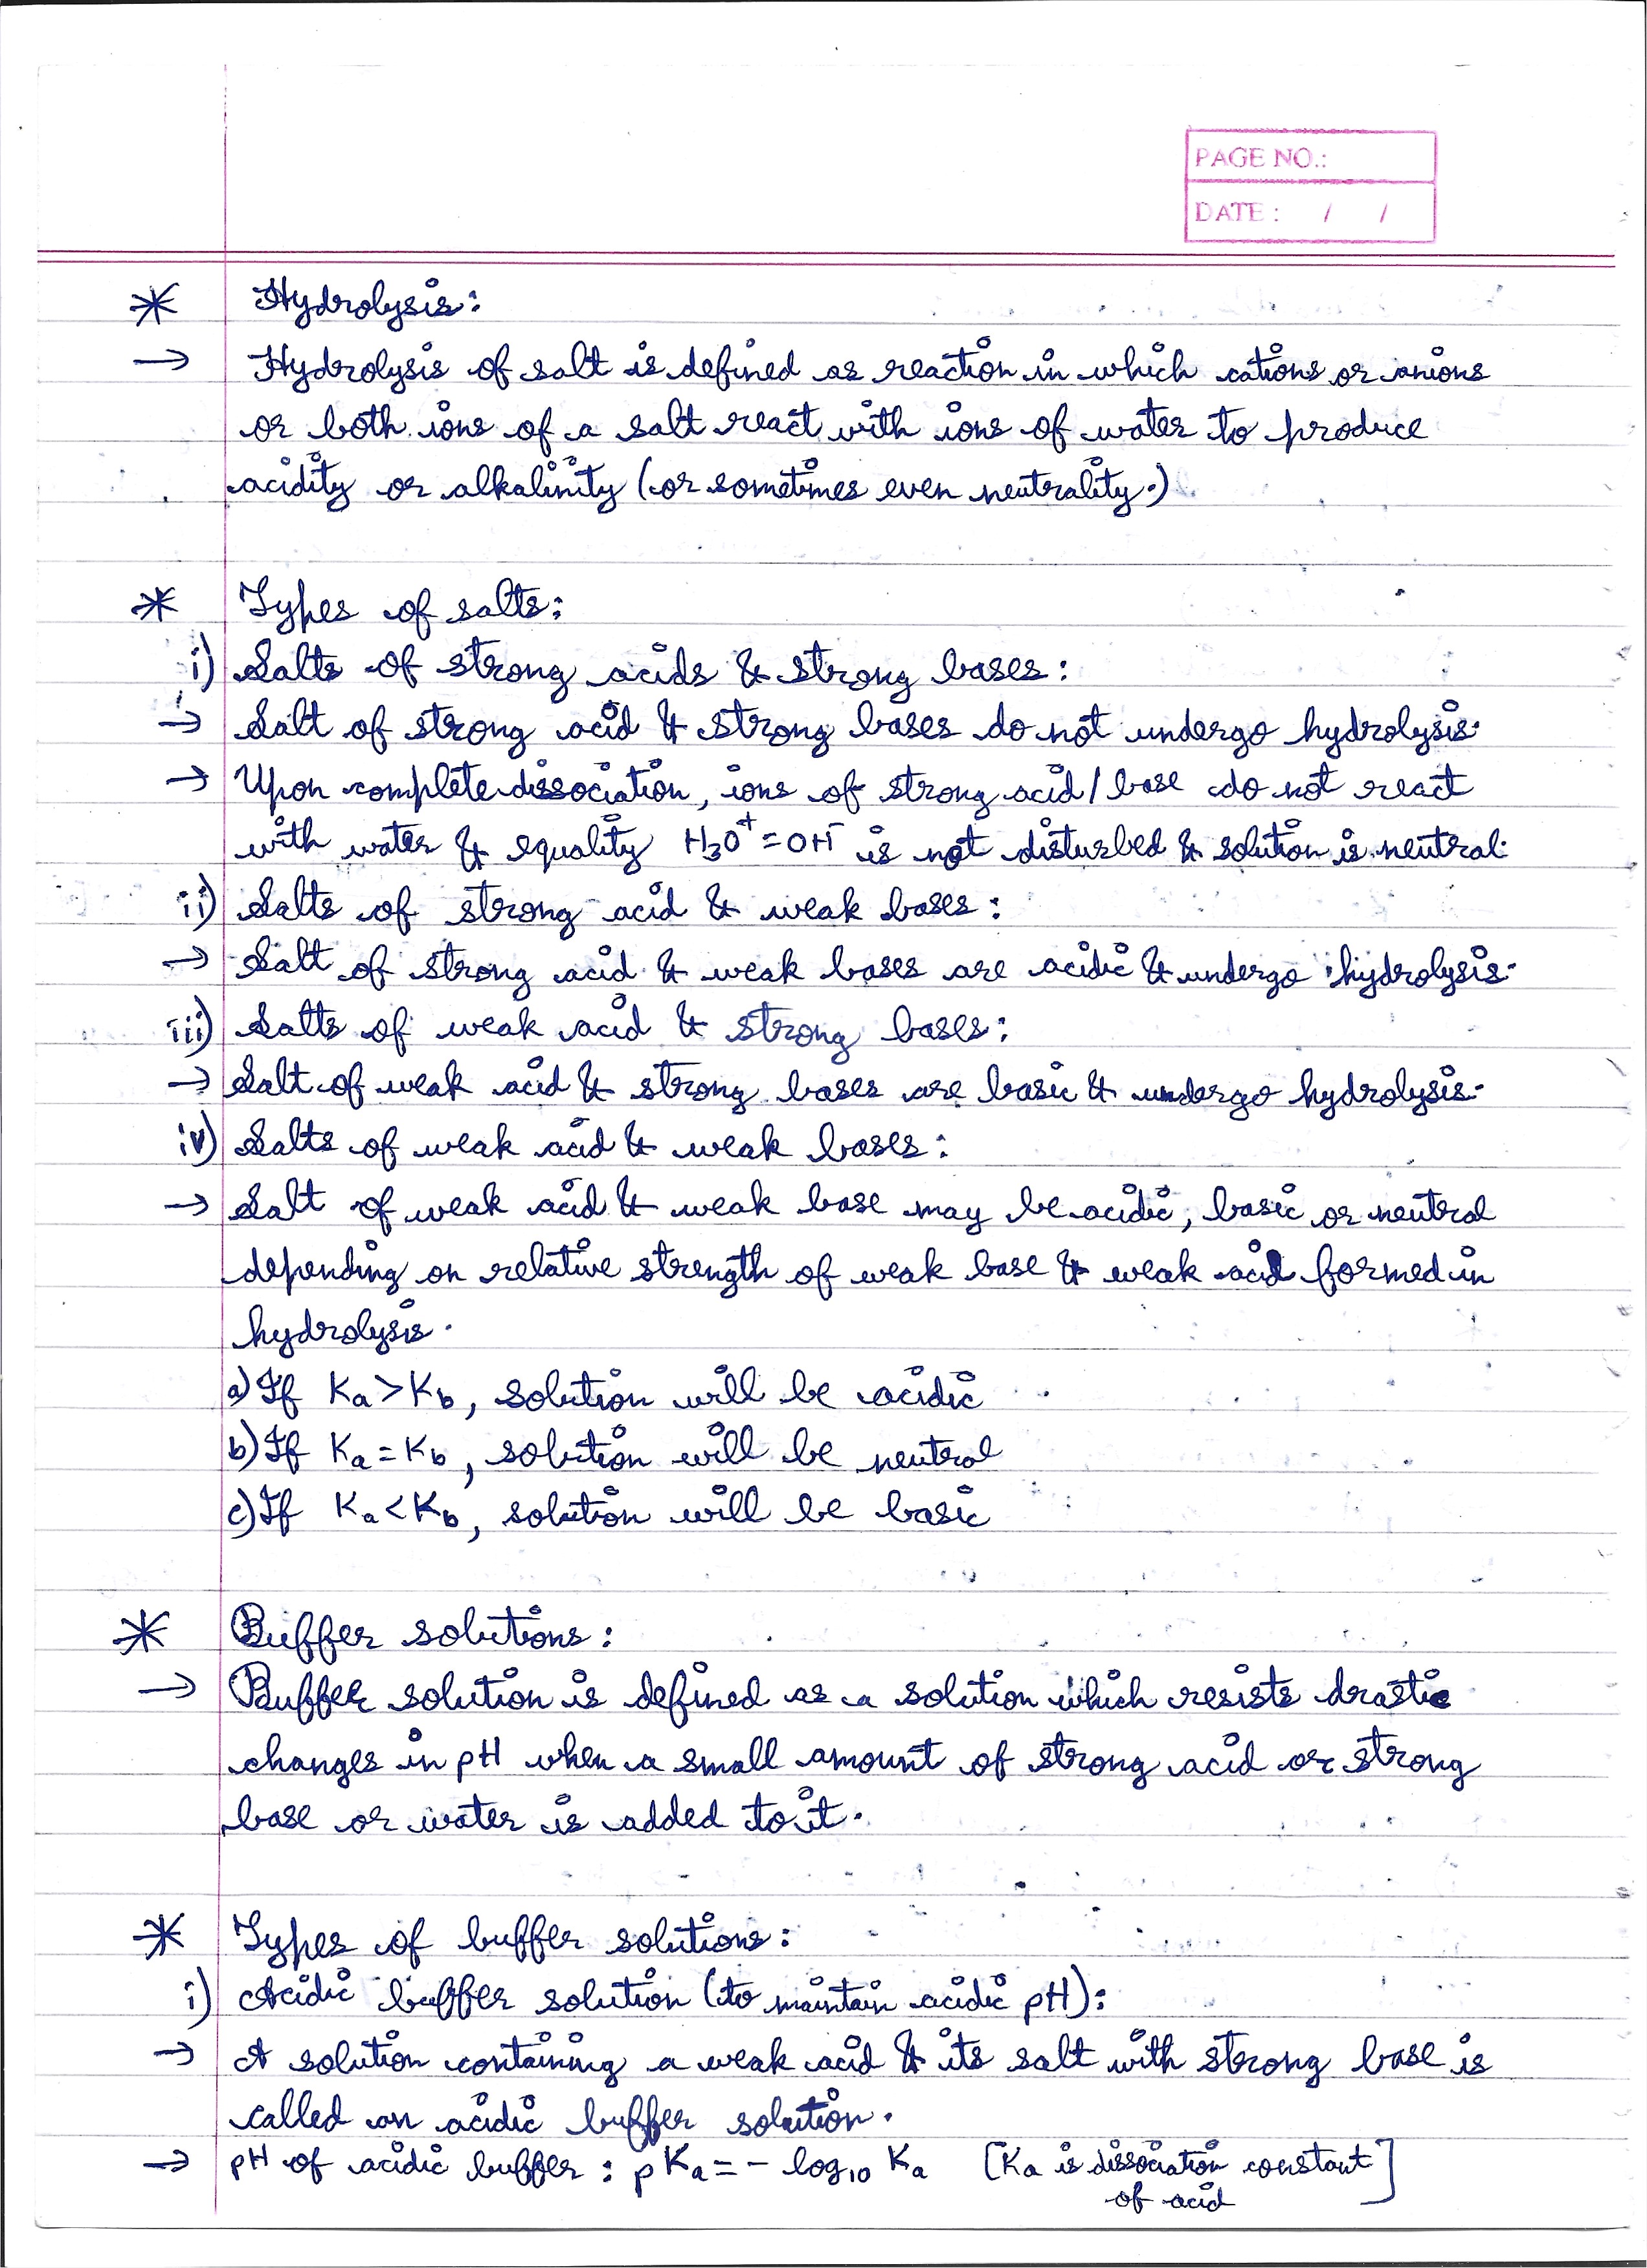 PAGE NO.:
DATE : / /
* Hydrolysis:
→ Hydrolysis of salt is defined as reaction in which cations or anions
or both ions of a salt react with ions of water to produce
acidity or alkalinity (or sometimes even neutrality.)
* Types of salts:
i) Salts of strong acids & strong bases:
→ Salt of strong acid & strong bases do not undergo hydrolysis.
→ Upon complete dissociation, ions of strong acid/base do not react
with water & equality H₃O⁺=OH⁻ is not disturbed & solution is neutral.
ii) Salts of strong acid & weak bases:
→ Salt of strong acid & weak bases are acidic & undergo hydrolysis.
iii) Salts of weak acid & strong bases:
→ Salt of weak acid & strong bases are basic & undergo hydrolysis.
iv) Salts of weak acid & weak bases:
→ Salt of weak acid & weak base may be acidic, basic or neutral
depending on relative strength of weak base & weak acid formed in
hydrolysis.
a) If Ka > Kb, solution will be acidic
b) If Ka = Kb, solution will be neutral
c) If Ka < Kb, solution will be basic
* Buffer solutions:
→ Buffer solution is defined as a solution which resists drastic
changes in pH when a small amount of strong acid or strong
base or water is added to it.
* Types of buffer solutions:
i) Acidic buffer solution (to maintain acidic pH):
→ A solution containing a weak acid & its salt with strong base is
called an acidic buffer solution.
→ pH of acidic buffer : pKa = - log₁₀ Ka [Ka is dissociation constant]
of acid